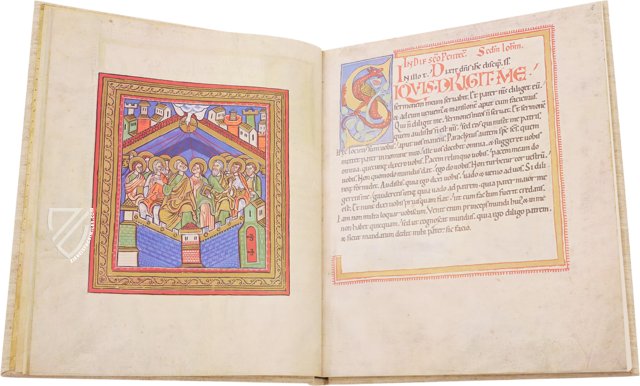 IN DIE SCO PENTEC. Scdm Iohm.
IN illo t. Dixit dns ihc discip. s.
SI QUIS DILIGIT ME
sermonem meum servabit. Et pater ms diliget eu
& ad eum veniemus & mansione apud eum faciemus
Qui n diligit me. sermones meos n servat. Et sermone
quem audistis n est ms. Sed ei qui misit me patris.
hec locutus sum vobis. apud vos manens. Paraclitus autem sps scs. que
mittet pater in nomine meo. ille vos docebit omnia. & suggeret vobis
omnia quecumq dixero vobis. Pacem relinquo vobis. pacem meam do
vobis. Non quomodo mundus dat. ego do vobis. Non turbet cor vestru.
neq formidet. Audistis quia ego dixi vobis. vado & venio ad vos. Si dili
geretis me. gauderetis utiq quia vado ad patrem. quia pater maior me
est. Et nunc dixi vobis priusqua fiat. ut cum factum fuerit credatis.
Iam non multa loquar vobiscum. Venit enim princeps mundi hui & in me
non habet quicquam. Sed ut cognoscat mundus. quia ego diligo patrem.
& sicut mandatum dedit mihi pater. sic facio.